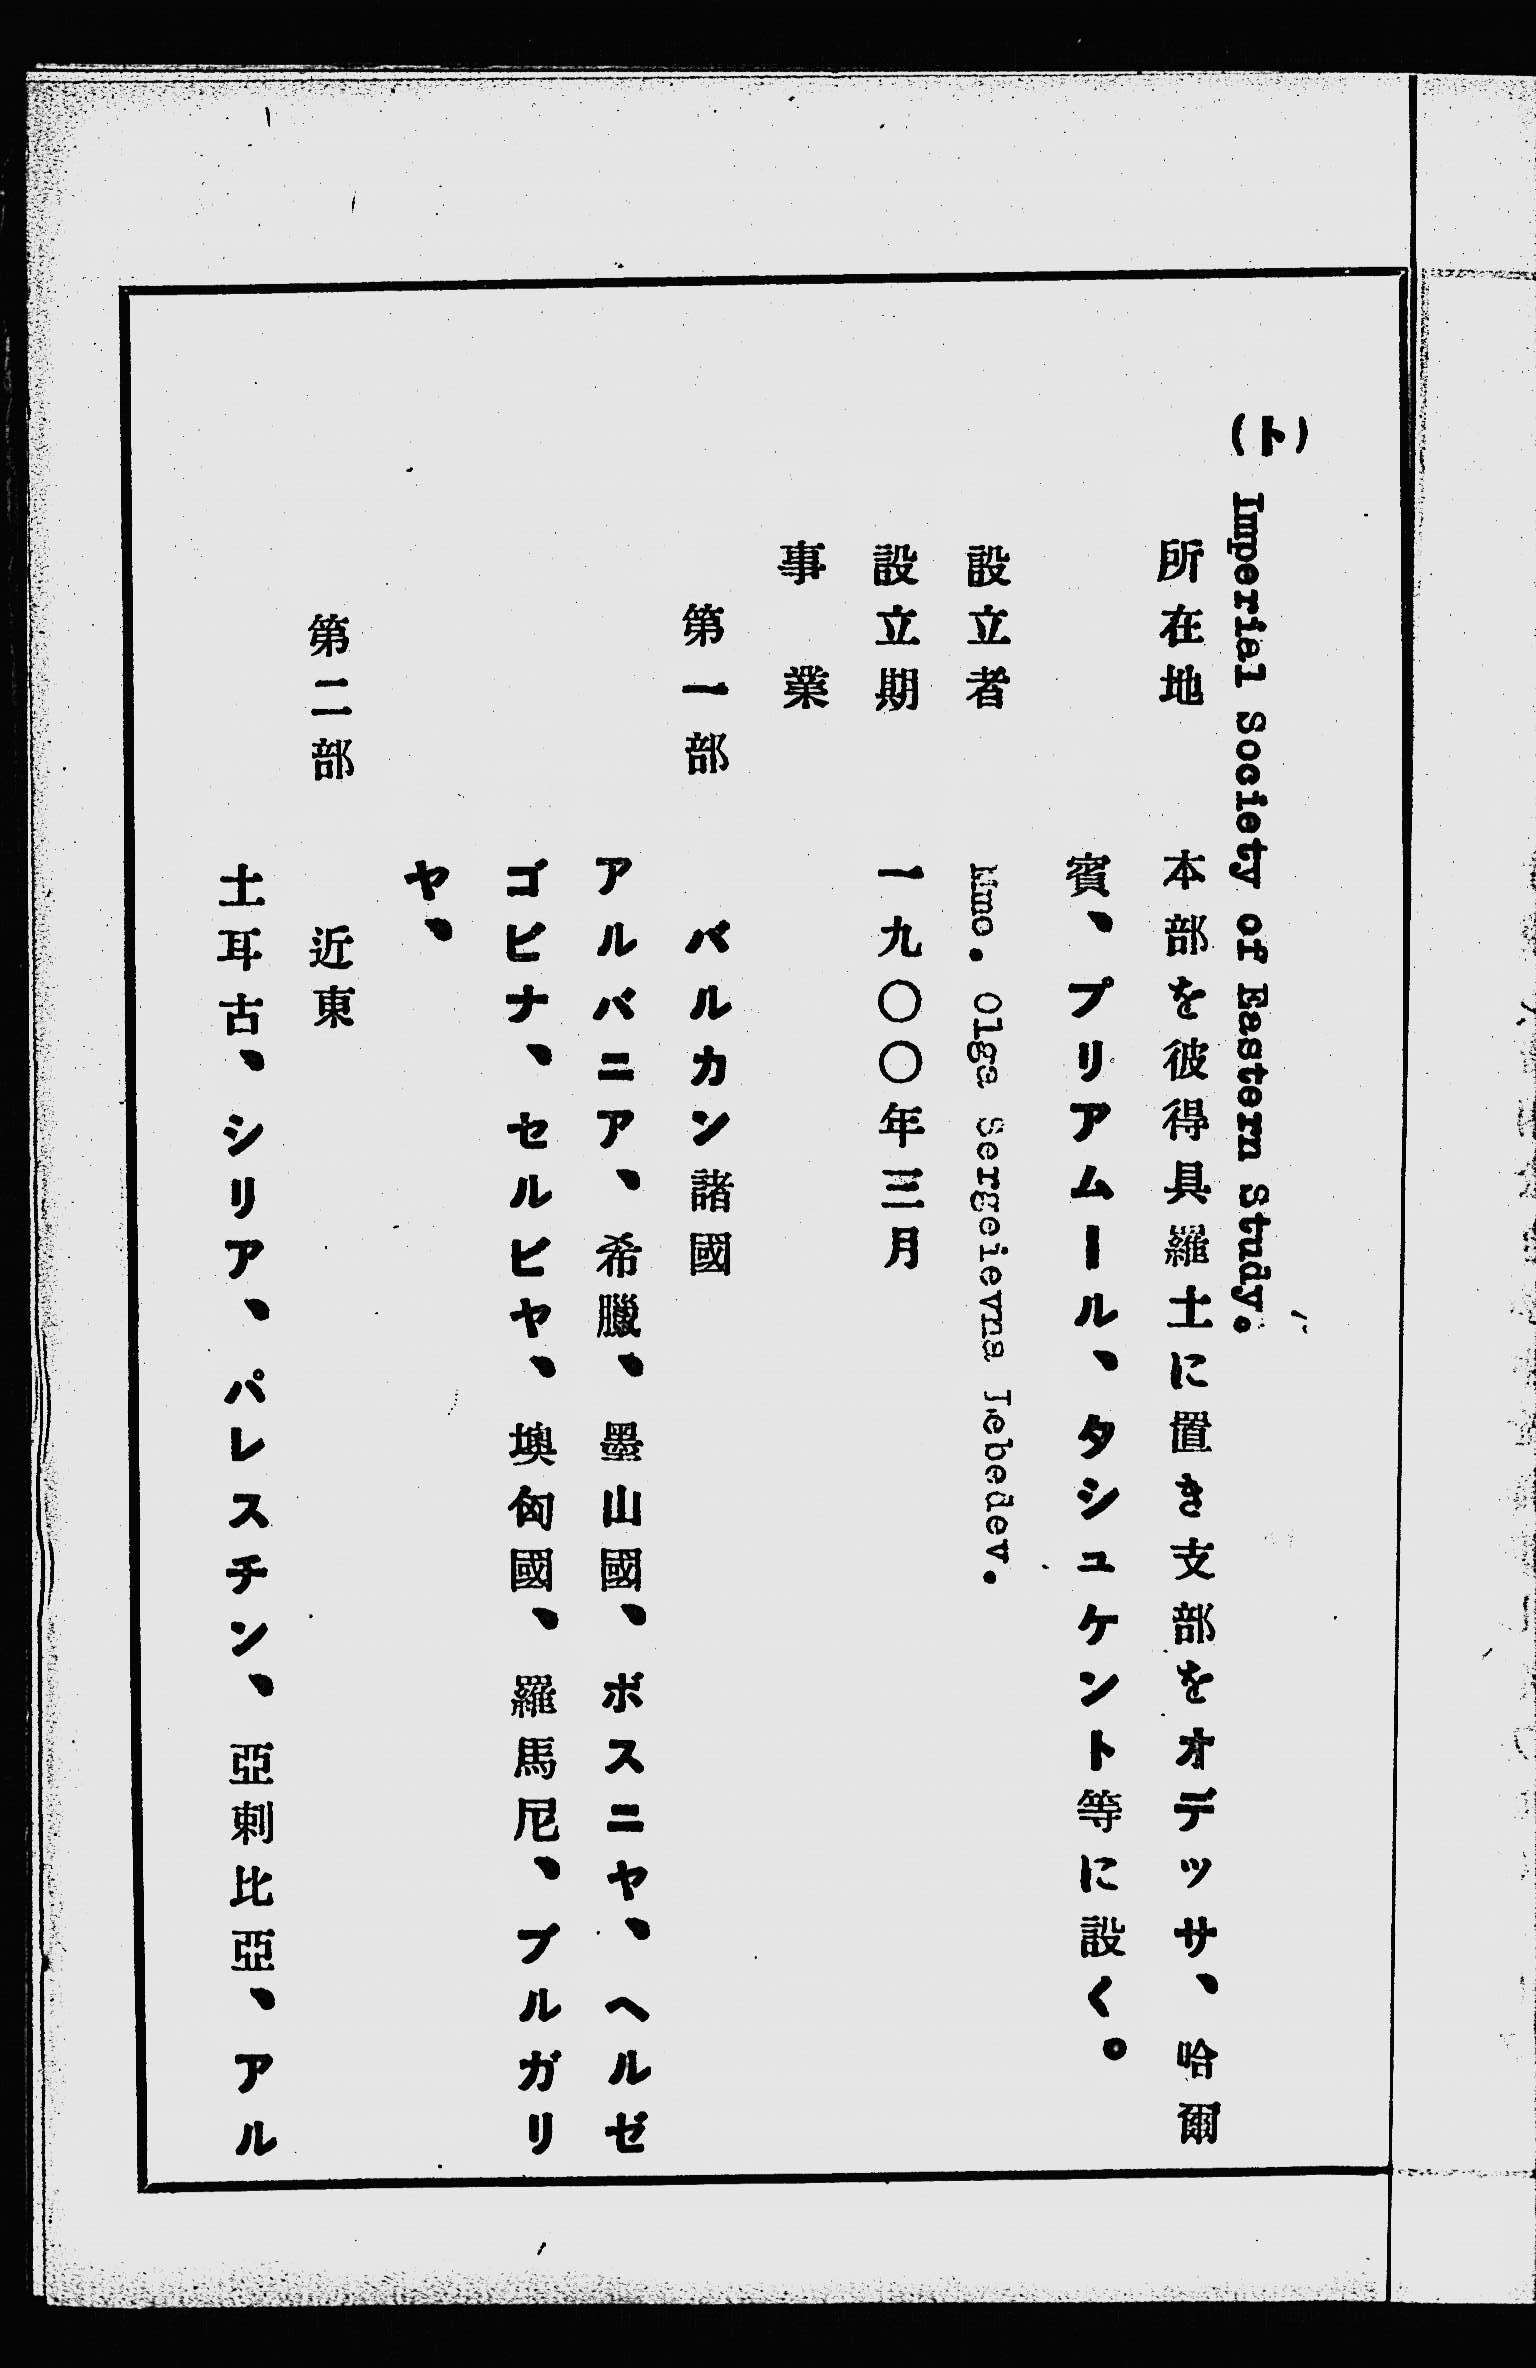 (ト) Imperial Society of Eastern Study.
所在地 本部を彼得具羅土に置き支部をオデッサ、哈爾
賓、プリアムール、タシュケント等に設く。
設立者 Mme. Olga Sergeievna Lebedev.
設立期 一九〇〇年三月
事業
第一部 バルカン諸國
アルバニア、希臘、墨山國、ボスニヤ、ヘルゼ
ゴビナ、セルビヤ、墺匈國、羅馬尼、ブルガリ
ヤ、
第二部 近東
土耳古、シリア、パレスチン、亞剌比亞、アル